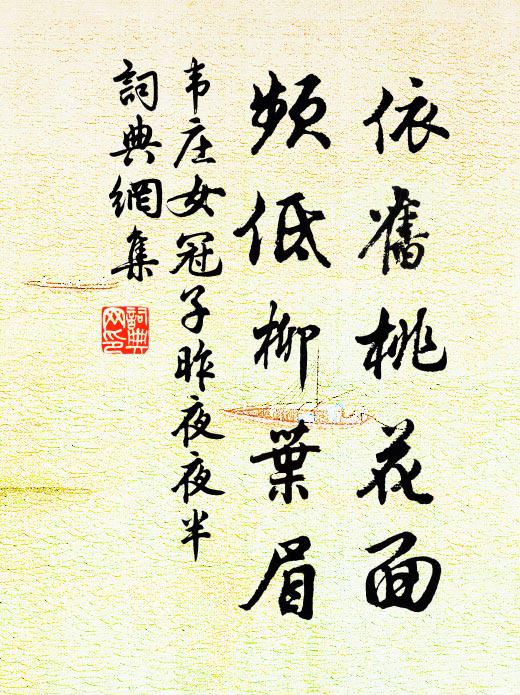 依舊桃花面
頻低柳葉眉
韦庄女冠子昨夜夜半
詞典網集
詞典網印